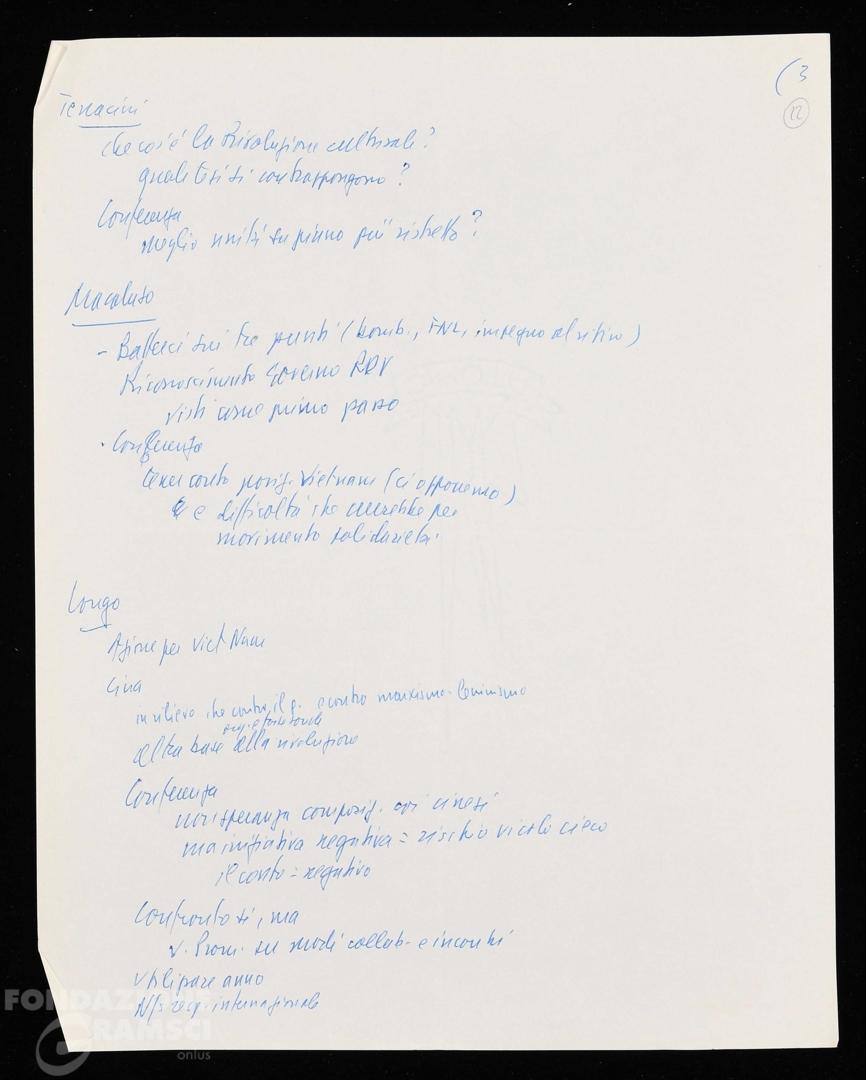 (3
12
Terracini
che cos'è la Rivoluzione culturale?
quale tesi si contrappongono?
Conferenza
meglio unità su piano più ristretto?
Macaluso
- Batterci sui tre punti (bomb., FNL, impegno al ritiro)
Riconoscimento Governo RDV
visti come primo passo
- Conferenza
tener conto posiz. Vietnam (ci opponemmo)
e difficoltà che creerebbe per
movimento solidarietà.
Longo
Azione per Viet Nam
Cina
in rilievo che contro il p. e contro marxismo-leninismo
altra base della rivoluzione
Conferenza
non speranza composiz. coi cinesi
ma iniziativa negativa = rischio vicolo cieco
il conto = negativo
Confronto sì, ma
v. Prom. su modi collab. e incontri
internazionale
FONDAZIONE
GRAMSCI
onlus